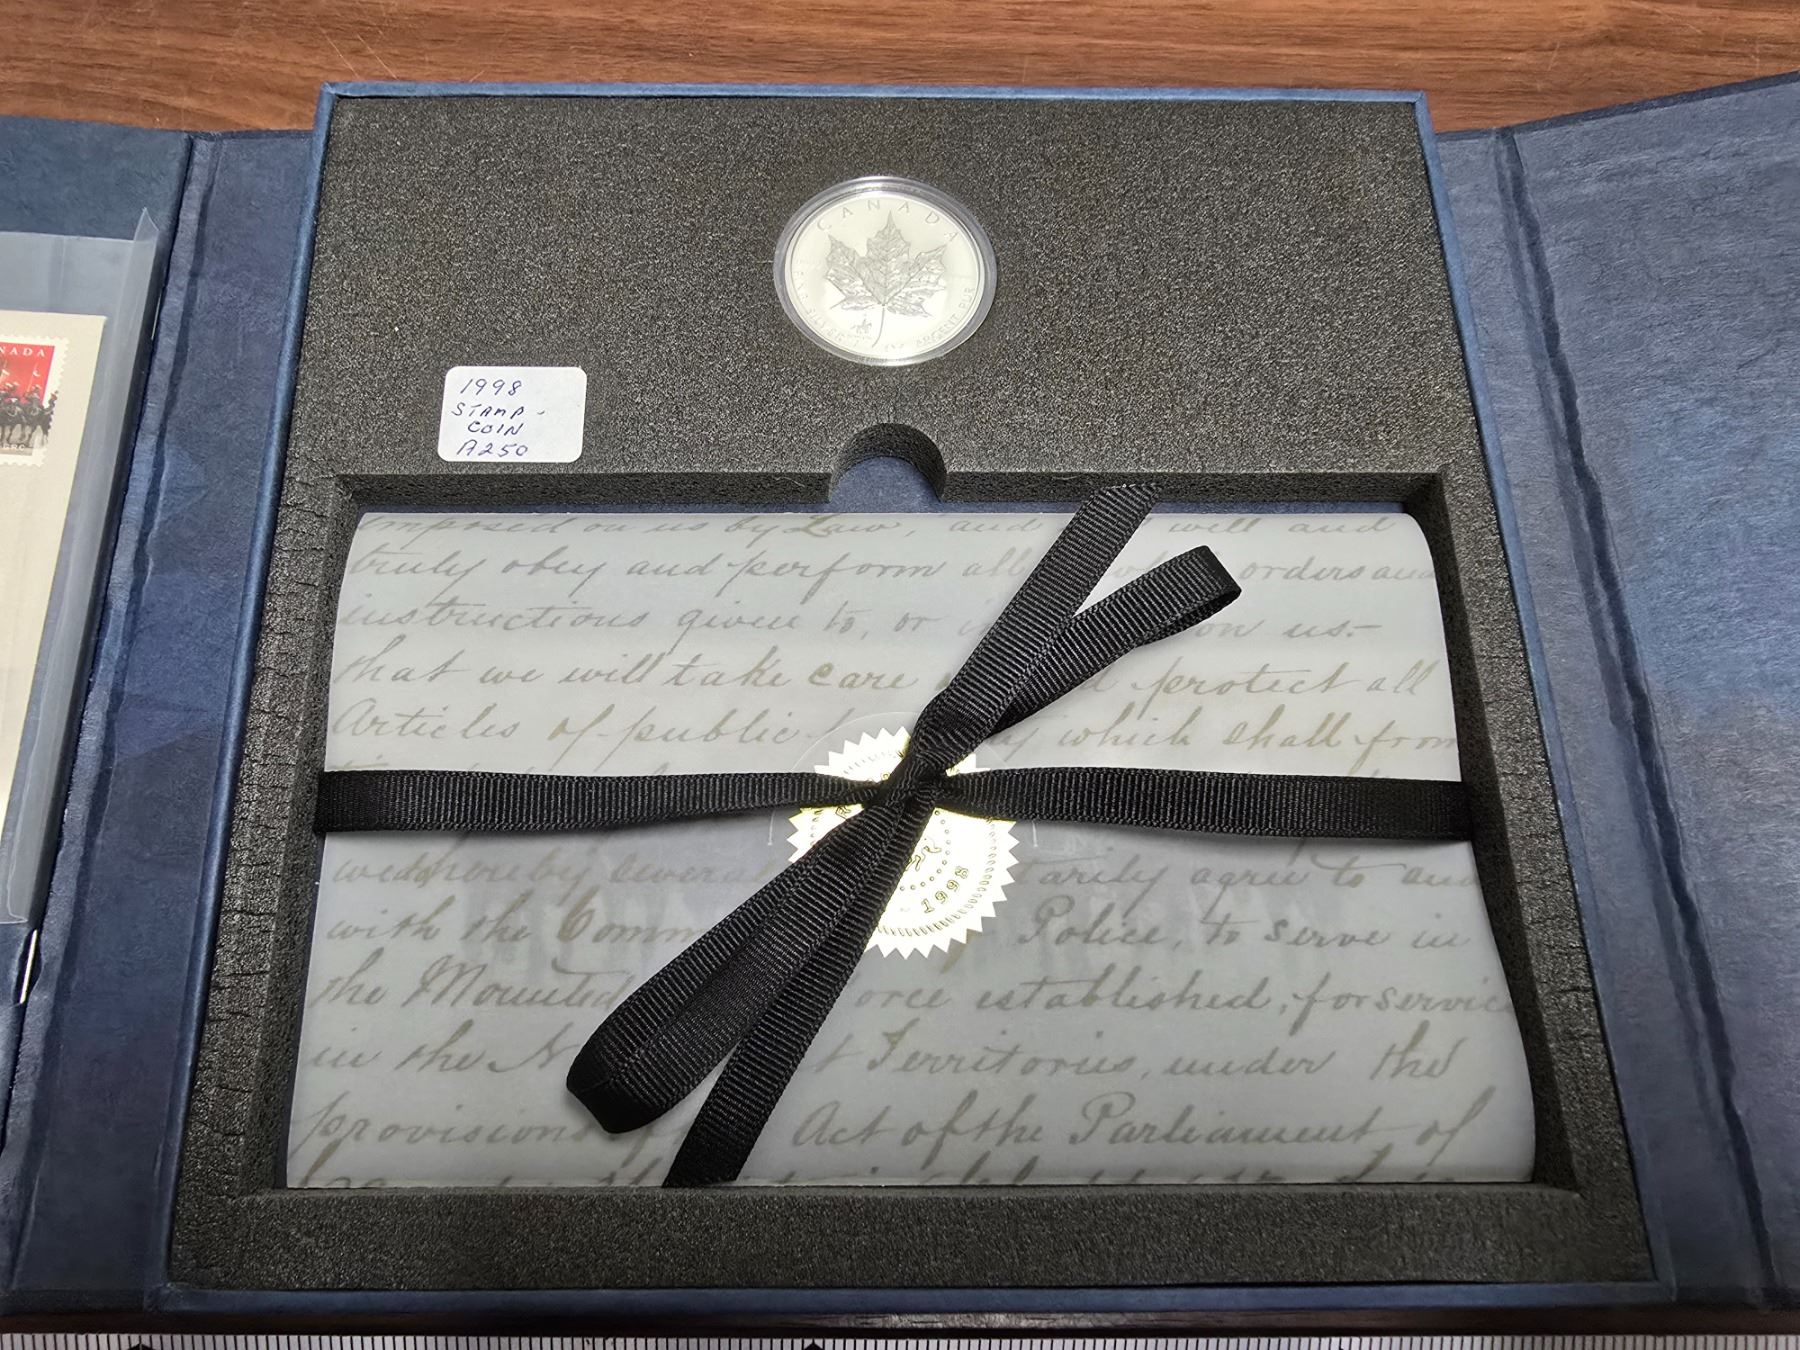 CANADA
FINE SILVER 1 OZ ARGENT PUR
NADA
GRC
1998
STAMP -
COIN
A250
imposed on us by Law, and well and
truly obey and perform all orders and
instructions given to, or on us:-
that we will take care protect all
Articles of public which shall from
arily agree to and
with the Comm Police, to serve in
the Mounted orce established, for service
in the N t Territories, under the
provision Act of the Parliament of
1998